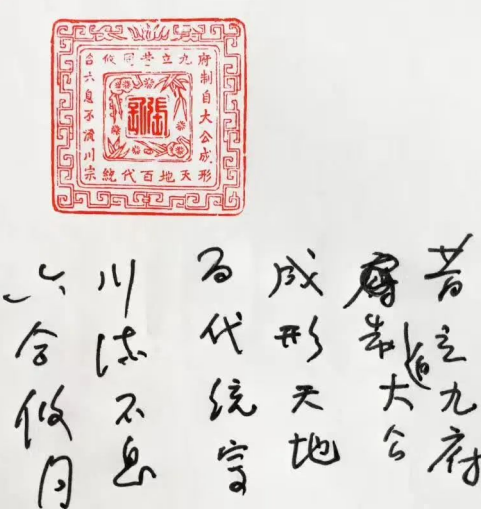 昔立九府制自大公成形天地百代統宗川流不息六合攸同
昔立九府
制自大公
成形天地
百代统宗
川流不息
六合攸同